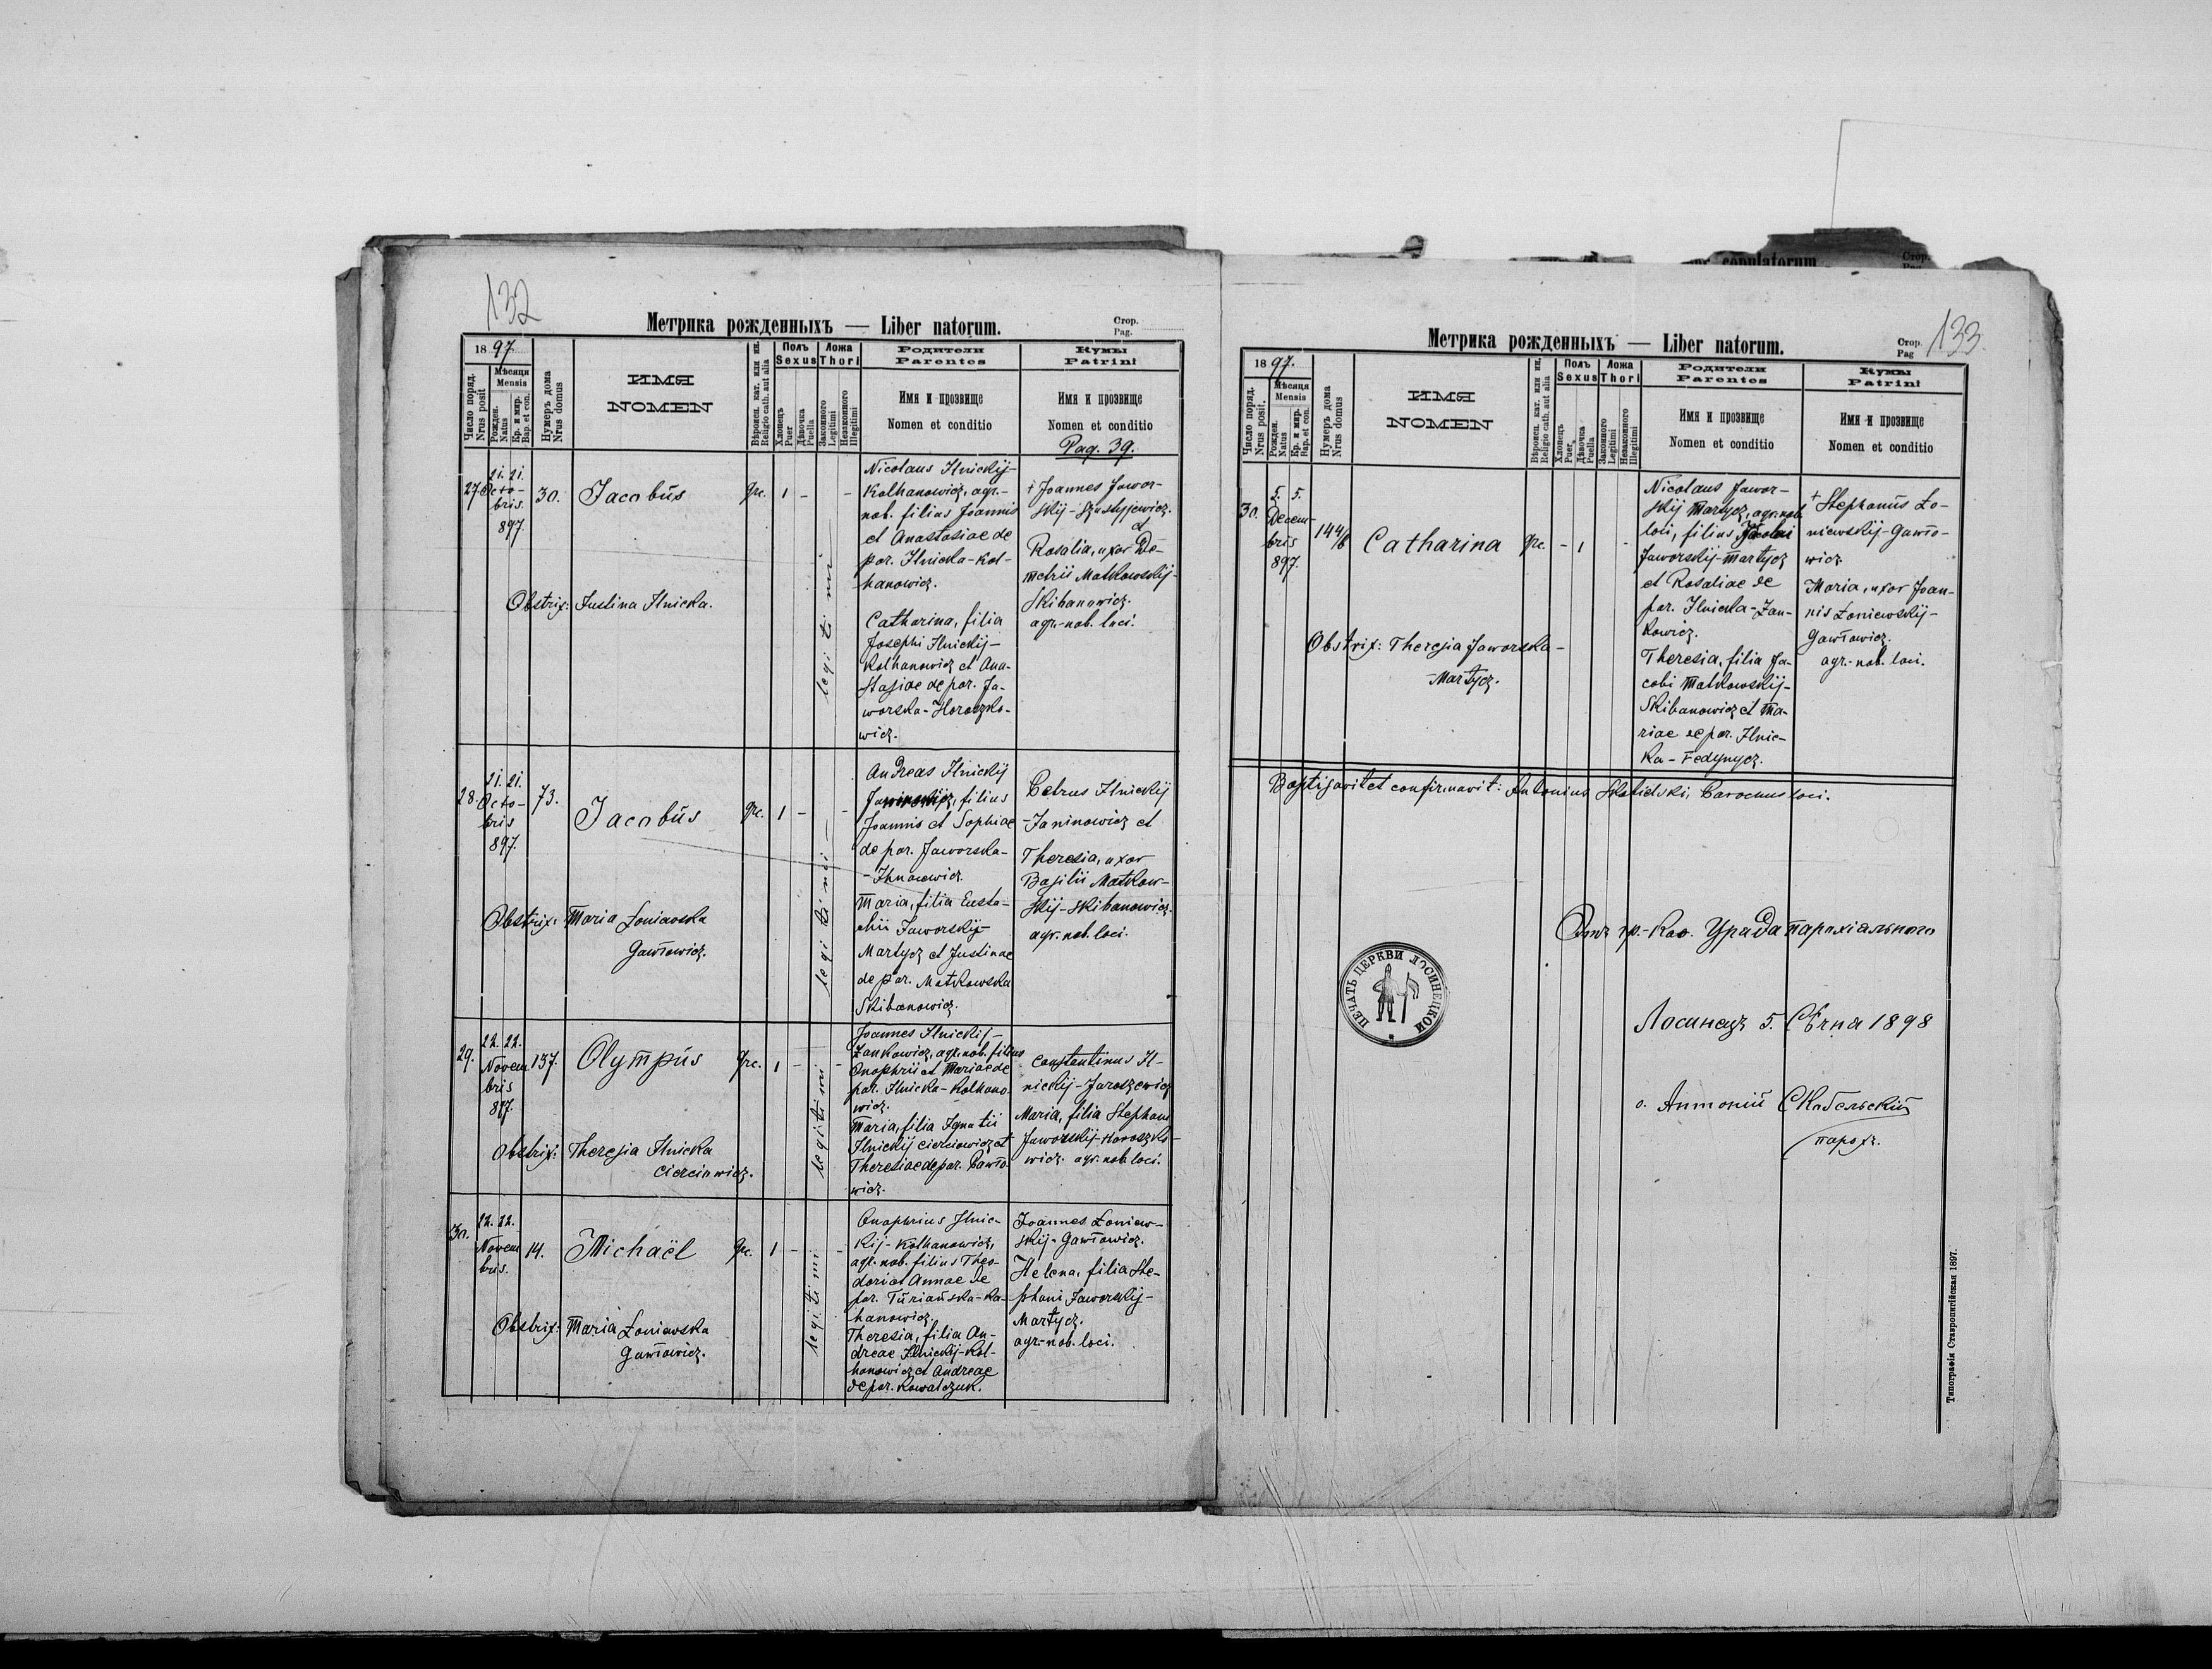 132
Метрика рожденныхъ — Liber natorum.
Стор.
Pag.
1897
Число поряд.
Nrus posit
Мѣсяця
Mensis
Рожден.
Natus
Кр. и мир.
Bap. et con.
Нумеръ дома
Nrus domus
ИМЯ
NOMEN
Вѣроисп. кат. или ин.
Religio cath. aut alia
Полъ
Sexus
Хлопецъ
Puer
Дѣвочка
Puella
Ложа
Thori
Законного
Legitimi
Незаконного
Illegitimi
Родители
Parentes
Имя и прозвище
Nomen et conditio
Кумы
Patrini
Имя и прозвище
Nomen et conditio
Pag. 39.
27.
21. 21.
Octo-
bris
897.
30.
Jacobus
grc.
1 -
legitimi
-
Nicolaus Ilnickij-
Kolhanowicz, agr.-
nob. filius Joannis
et Anastasiae de
par. Ilnicka-Kol-
hanowicz.
Catharina, filia
Josephi Ilnickij-
Kolhanowicz et Ana-
stasiae de par. Ja-
worska-Horoszko-
wicz.
+ Joannes Jawor-
skij-
et
Rosalia, uxor De-
metrii Matkowskij-
Skibanowicz.
agr.-nob. loci.
Obstrix: Justina Ilnicka.
28.
21. 21.
Octo-
bris
897.
73.
Jacobus
grc.
1 -
legitimi
-
Andreas Ilnickij
filius
Joannis et Sophiae
de par. Jaworska-
Maria, filia Eusta-
chii Jaworskij-
Martycz et Justinae
de par. Matkowska
Skibanowicz.
Petrus Ilnickij
-Janinowicz et
Theresia, uxor
Basilii Matkow-
skij-Skibanowicz.
agr. nob. loci.
Obstrix: Maria Łoniewska
Gawłowicz.
29.
22. 22.
Novem
bris
897.
137.
Olympus
grc.
1 -
legitimi
-
Joannes Ilnickij-
Zankowicz, agr. nob. filius
Onophrii et Mariae de
par. Ilnicka-Kolhano
wicz.
Maria, filia Ignatii
Ilnickij Cierciowicz et
Theresiae de par. Pawło
wicz.
Constantinus Il-
nickij-Jaroszewicz
Maria, filia Stephani
Jaworskij-Horoszko-
wicz. agr. nob. loci.
Obstrix: Theresia Ilnicka
Cierciowicz.
30.
22. 22.
Novem
bris.
14.
Michaël
grc.
1 -
legitimi
-
Onophrius Ilnic-
kij-Kolhanowicz,
agr.-nob. filius Theo-
dori et Annae de
par. Turiańska-Ka-
hanowicz.
Theresia, filia An-
dreae Ilnickij-Kol-
hanowicz et Andreae
de par. Kowalczuk.
Joannes Łoniew-
skij-Gawłowicz.
Helena, filia Ste-
phani Jaworskij-
Martycz.
agr.-nob. loci.
Obstrix: Maria Łoniewska
Gawłowicz.
copulatorum
Стор.
133
Метрика рожденныхъ — Liber natorum.
Стор.
Pag
1897.
Число поряд.
Nrus posit.
Мѣсяця
Mensis
Рожден.
Natus
Кр. и мир.
Bap. et con.
Нумеръ дома
Nrus domus
ИМЯ
NOMEN
Вѣроисп. кат. или ин.
Religio cath. aut alia
Полъ
Sexus
Хлопецъ
Puer
Дѣвочка
Puella
Ложа
Thori
Законного
Legitimi
Незаконного
Illegitimi
Родители
Parentes
Имя и прозвище
Nomen et conditio
Кумы
Patrini
Имя и прозвище
Nomen et conditio
30.
5. 5.
Decem-
bris
897.
144/6
Catharina
grc.
- 1
-
Nicolaus Jawor-
skij Martycz, agr. nob.
loci, filius
Jaworskij-Martycz
et Rosaliae de
par. Ilnicka-Zan-
kowicz.
Theresia, filia Ja-
cobi Matkowskij-
Skibanowicz et Ma-
riae de par. Ilnic-
ka-Fedynycz.
+ Stephanus Ło-
niewskij-Gawło-
wicz.
Maria, uxor Joan-
nis Łoniewskij-
Gawłowicz.
agr.-nob. loci.
Obstrix: Theresia Jaworska-
-Martycz.
Baptisavit et confirmavit: Antonius Parochus loci.
Отъ гр.-кат. Уряда парохіяльного
ПЕЧАТЬ ЦЕРКВИ ЛОСИНЕЦКОЙ
Лосинецъ 5. Сѣчня 1898
о. Антоній Скобельскій
парохъ.
Типографія Ставропигійская 1897.